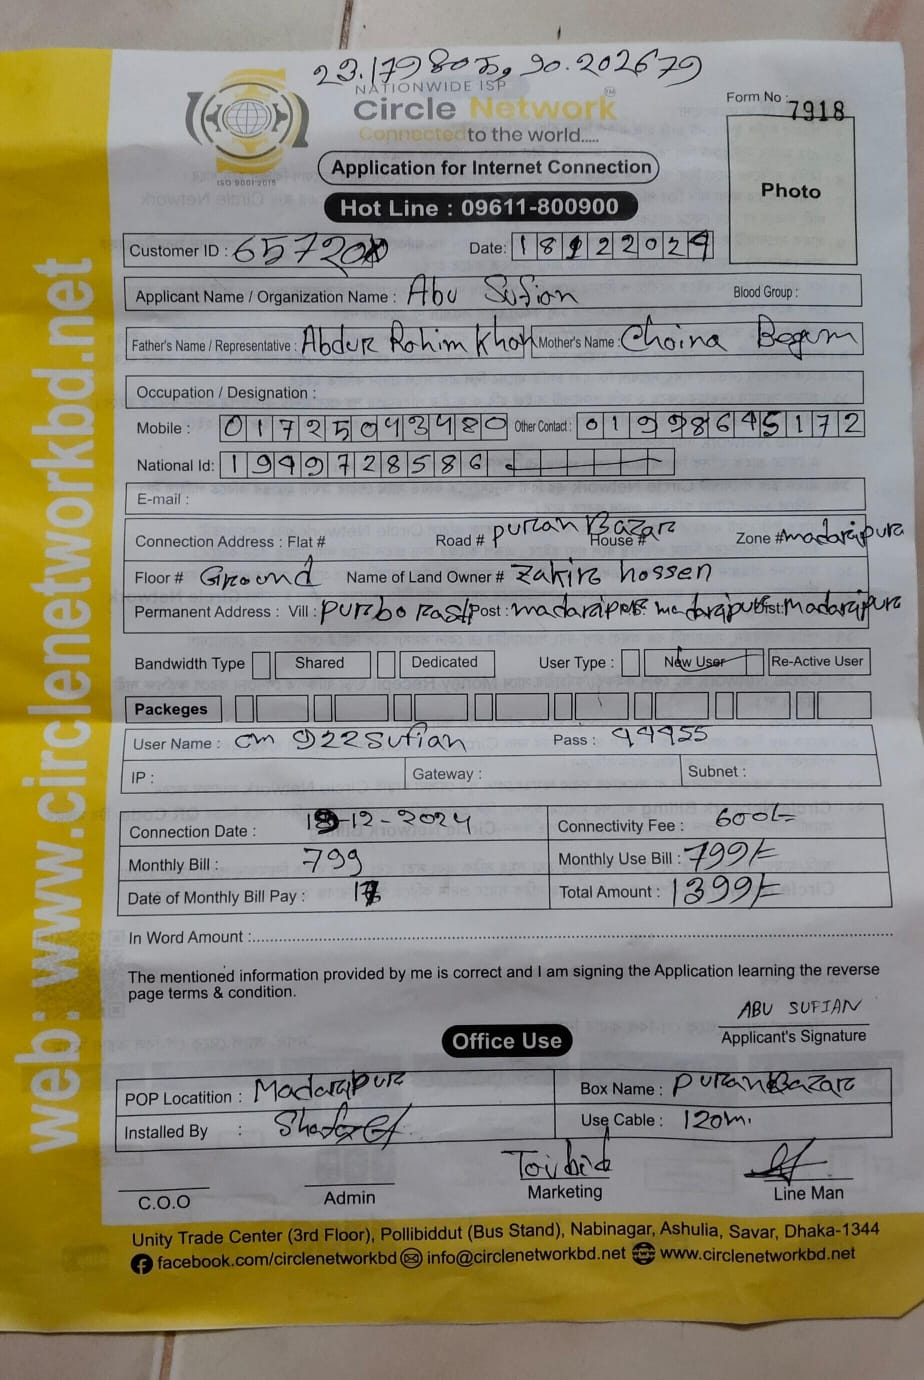 NATIONWIDE ISP
Circle Network
Connected to the world.....
ISO 9001:2015
Form No : 7918
Photo
Application for Internet Connection
Hot Line : 09611-800900
Customer ID : 65720 Date: 18122024
Applicant Name / Organization Name : Abu Sufian Blood Group :
Father's Name / Representative : Abdur Rohim Khan Mother's Name : Choina Begum
Occupation / Designation :
Mobile : 01725043480 Other Contact : 01998645172
National Id: 1949728586
E-mail :
Connection Address : Flat # Road # puran Bazar House # Zone # madaripur
Floor # Ground Name of Land Owner # Zakir hossen
Permanent Address : Vill : purbo Rasti Post : madaripur madaripur Dist: Madaripur
Bandwidth Type Shared Dedicated User Type : New User Re-Active User
Packeges
User Name : cm 922 Sufian Pass : 44455
IP : Gateway : Subnet :
Connection Date : 18-12-2024 Connectivity Fee : 600/=
Monthly Bill : 799 Monthly Use Bill : 799/=
Date of Monthly Bill Pay : 17 Total Amount : 1399/=
In Word Amount :
The mentioned information provided by me is correct and I am signing the Application learning the reverse
page terms & condition.
ABU SUFIAN
Applicant's Signature
Office Use
POP Locatition : Madaripur Box Name : Puran Bazar
Installed By : Use Cable : 120m.
C.O.O Admin Marketing Line Man
Unity Trade Center (3rd Floor), Pollibiddut (Bus Stand), Nabinagar, Ashulia, Savar, Dhaka-1344
facebook.com/circlenetworkbd info@circlenetworkbd.net www.circlenetworkbd.net
web: www.circlenetworkbd.net